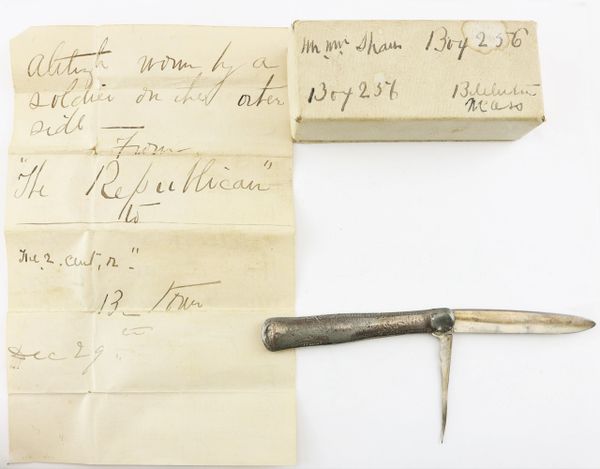 Altough worn by a
soldier on the other
side —
From
"The Republican"
to
The 2. cent,
B— Town
Dec 29
Wm Shaw Box 256
Box 256
Mass